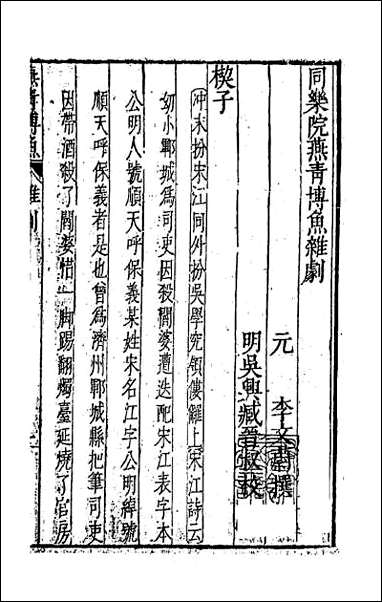 同樂院燕青博魚雜劇
元 李文蔚撰
明吳興臧晉叔校
楔子
冲末扮宋江同外扮吳學究領僂儸上宋江詩云
幼小鄆城爲司吏因殺閻婆遭迭配宋江表字本
公明人號順天呼保義某姓宋名江字公明綽號
順天呼保義者是也曾爲濟州鄆城縣把筆司吏
因帶酒殺了閻婆惜一脚踢翻燭臺延燒了官房
燕青博魚
雜劇